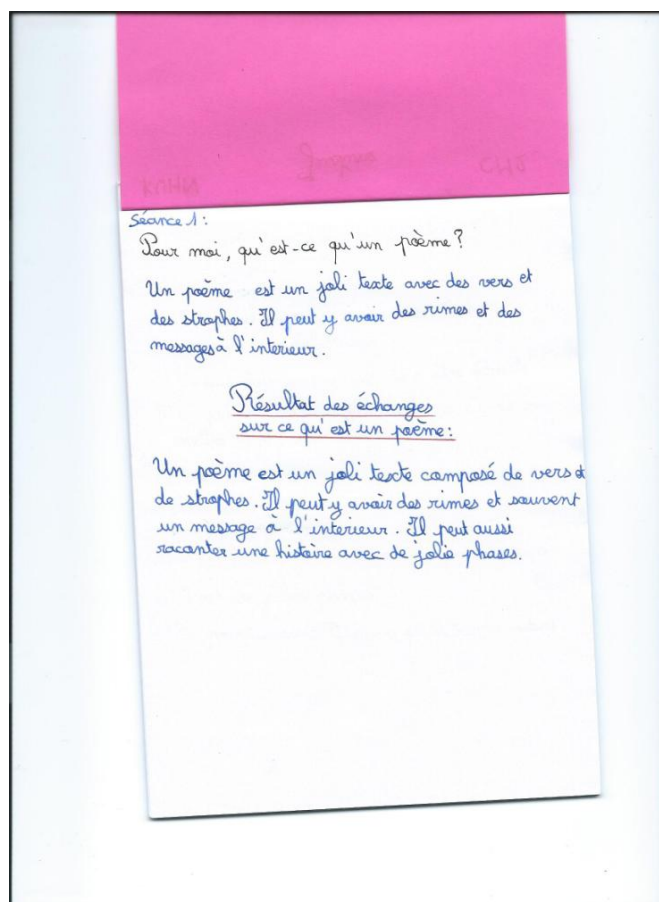 Séance 1:
Pour moi, qu'est-ce qu'un poème?
Un poème est un joli texte avec des vers et
des strophes. Il peut y avoir des rimes et des
messages à l'interieur.
Résultat des échanges
sur ce qu'est un poème:
Un poème est un joli texte composé de vers et
de strophes. Il peut y avoir des rimes et souvent
un message à l'interieur. Il peut aussi
raconter une histoire avec de jolie phases.